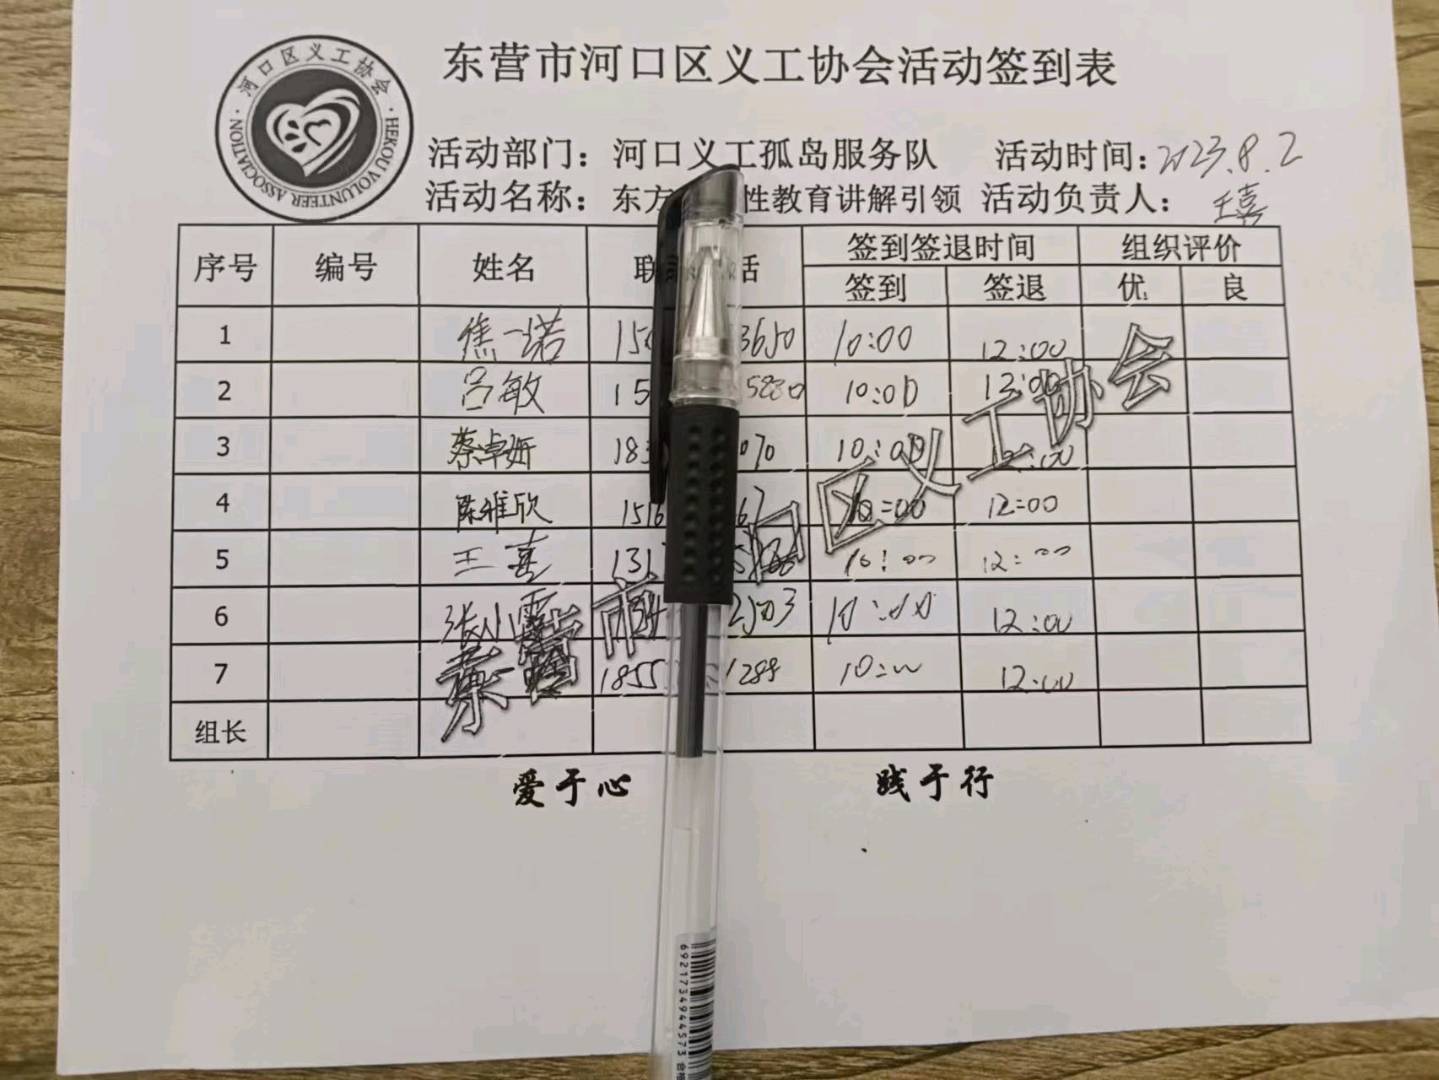 河口区义工协会
HEKOU VOLUNTEER ASSOCIATION
东营市河口区义工协会活动签到表
活动部门：河口义工孤岛服务队 活动时间：2023.8.2
活动名称：东方 性教育讲解引领 活动负责人：王喜
序号 编号 姓名 联 话 签到签退时间 组织评价
签到 签退 优 良
1 焦一诺 150 3650 10:00 12:00
2 吕敏 15 5880 10:00 12:00
3 蔡卓妍 183 070 10:00 12:00
4 陈雅欣 1516 67 10:00 12:00
5 王喜 1317 10:00 12:00
6 2503 10:00 12:00
7 1855 10:00 12:00
组长
东营市 河口区义工协会
爱于心 践于行
6921734944573 合格